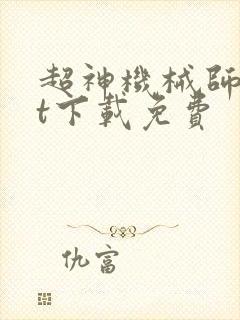 超神機械師
t下載免費
仇富